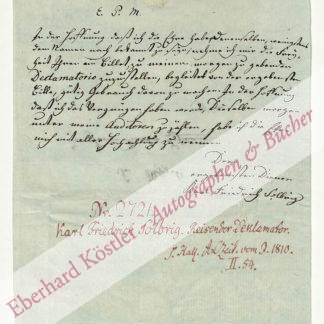 E. P. M.
In der Hoffnung daß ich die Ehre habe Denenselben, wenigstens
dem Namen nach bekannt zu seyn, nehme ich mir die Frey-
heit Ihnen ein Billet zu meinem morgen zu gebenden
Declamatorio zuzustellen, begleitet von der ergebensten
Bitte, gütig Gebrauch davon zu machen. In der Hoffnung
daß ich das Vergnügen haben werde, Dieselben morgen
unter meine Auditoren zu zählen, habe ich die Ehre
mich mit aller Hochachtung zu nennen
ergebensten Diener
Friedrich Solbrig
Nr. 2721
Karl Friedrich Solbrig. Reisender Deklamator.
Hall. Zeit. v. J. 1810.
II. 54.
Eberhard Köstler Autographen & Bücher